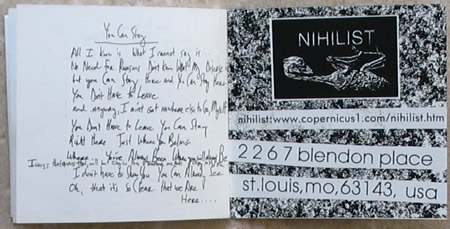 You Can Stay
All I know is What I cannot say is...
No Need for Reasons Don't know What My Disease is
but you Can Stay Here and You Can Stay Here
You Don't Have to Leave
and anyway, I ain't got nowhere else to Go, Myself
You Don't Have to Leave You Can Stay
Right Here Just Where You Belong
Where You've Always Been Where you'll always Be
I don't have to Show You You Can Already See
Oh, that it's so Clear that we Are
Here....
NIHILIST
nihilist:www.copernicus1.com/nihilist.htm
2267 blendon place
st.louis,mo,63143, usa